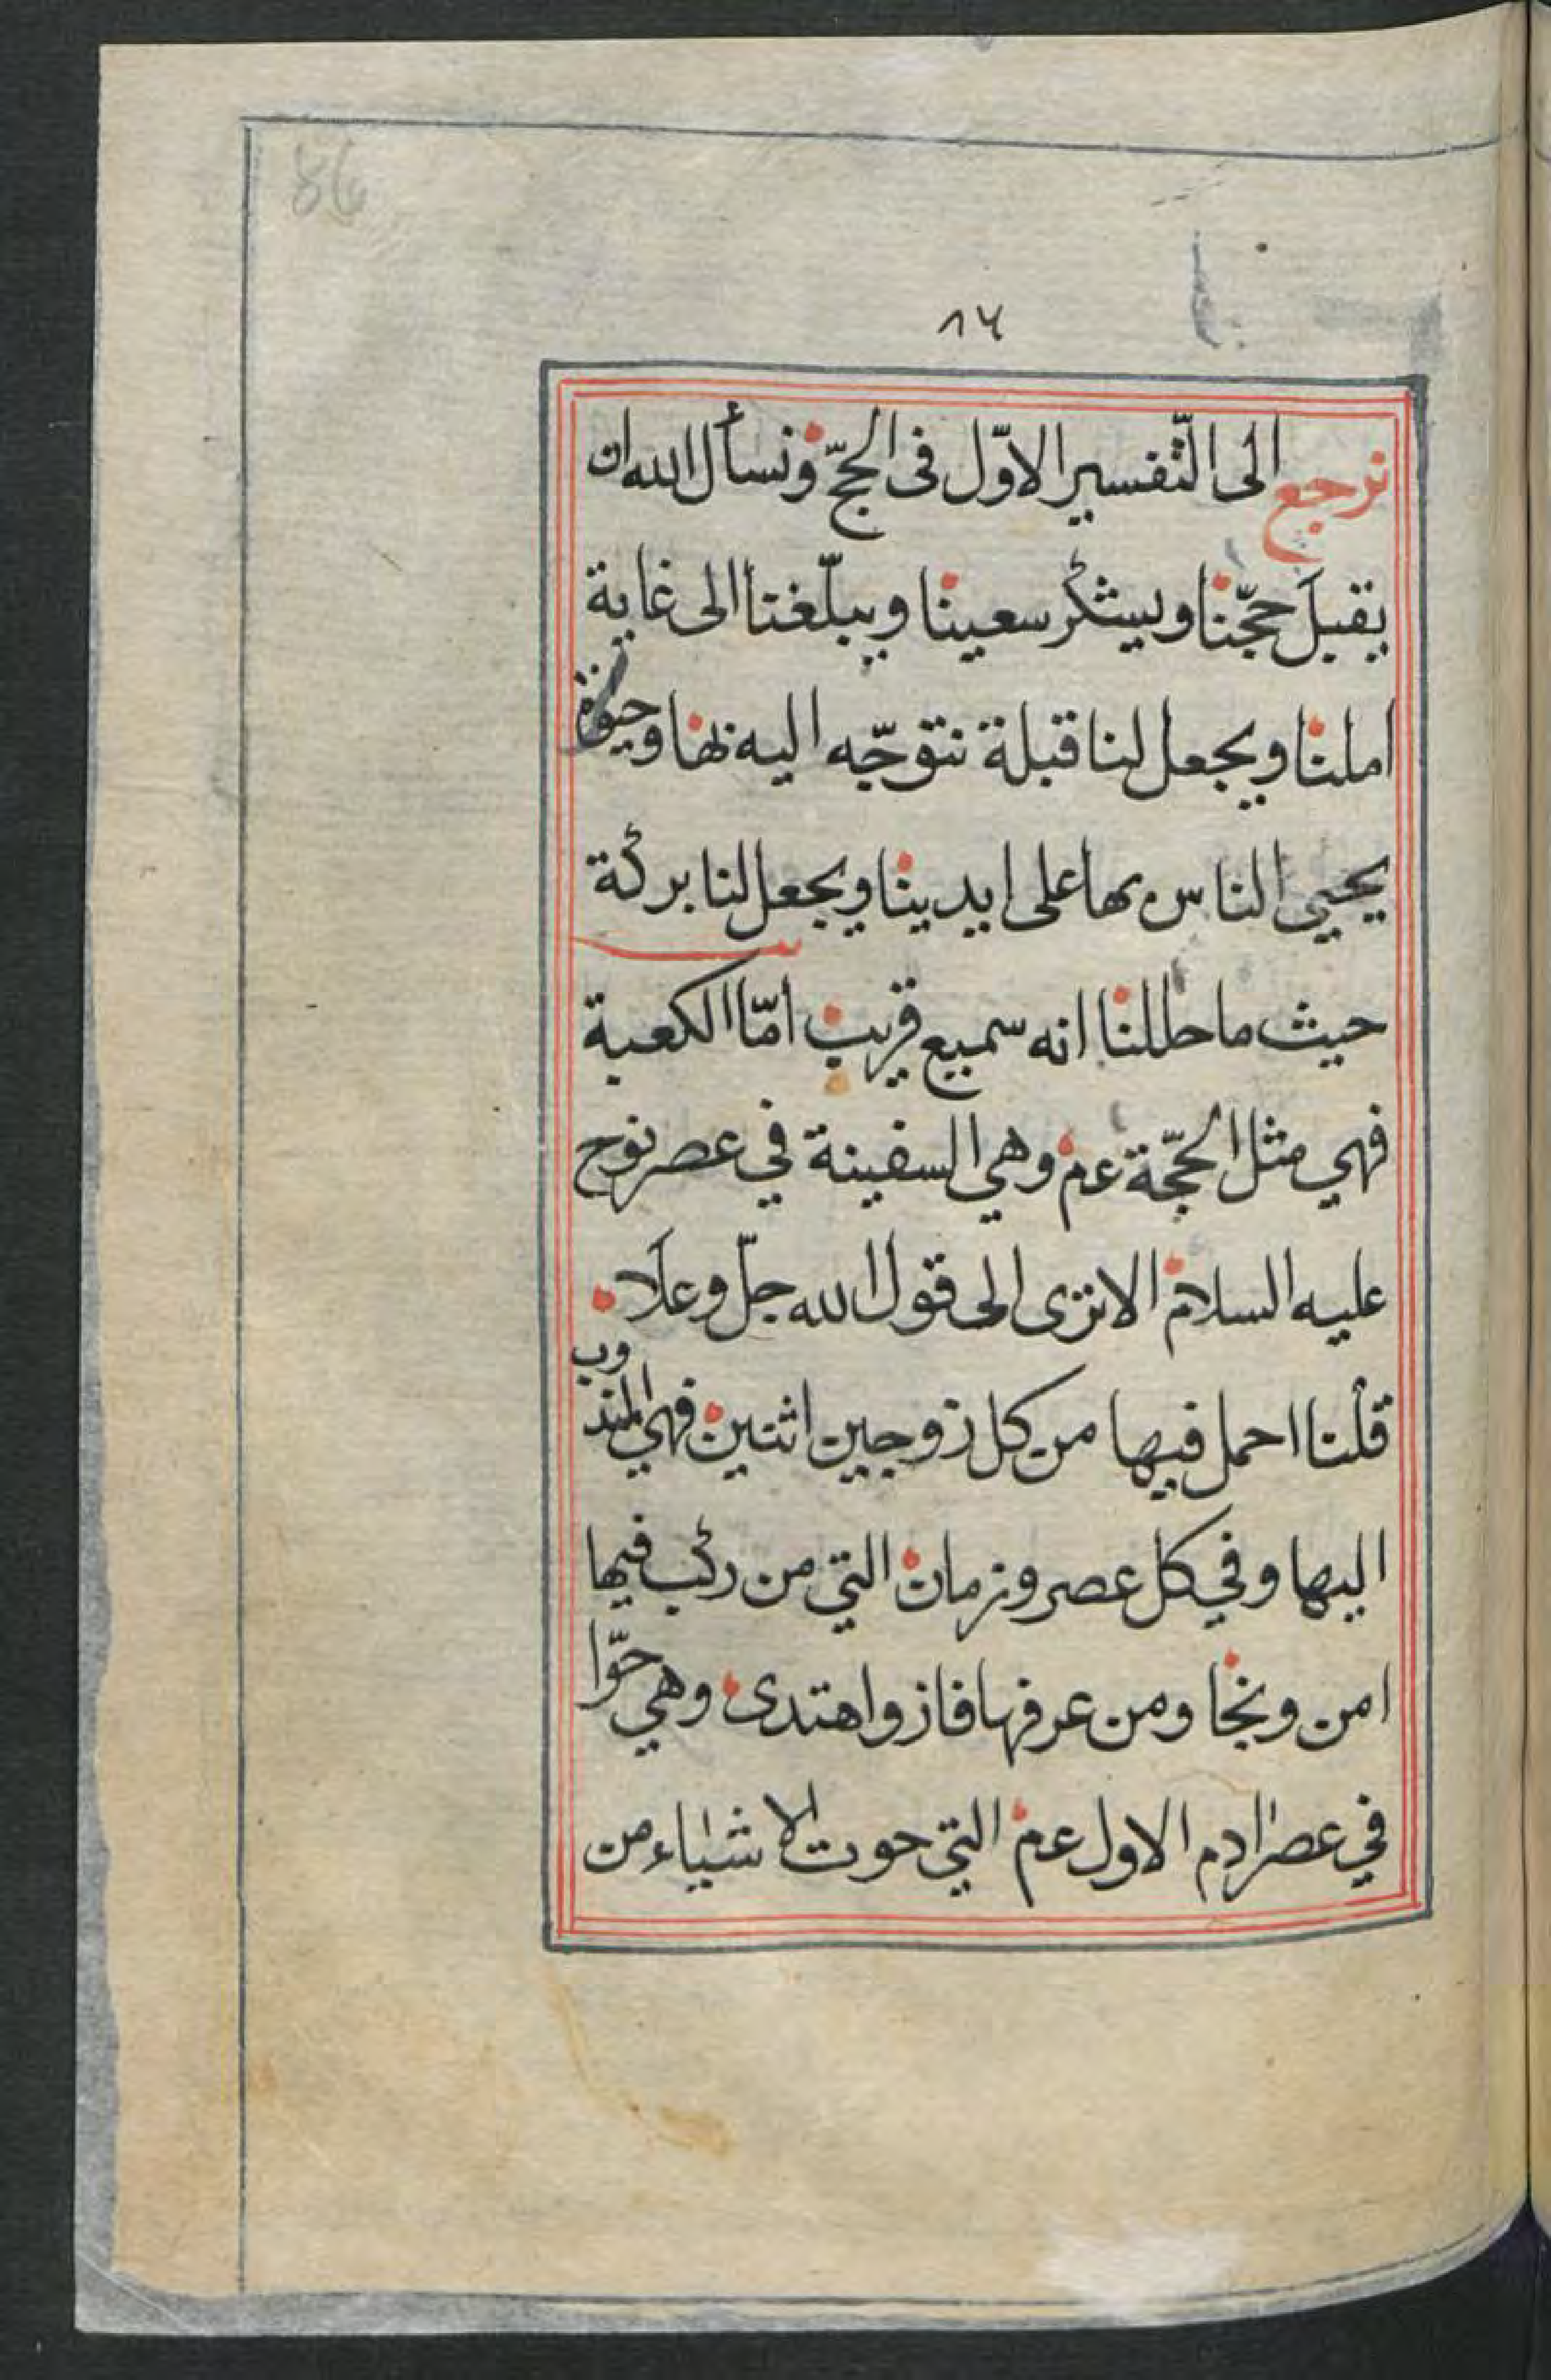 86
٨٦
نرجع الى التّفسير الاوّل فى الحجّ ونسأل الله ان
يقبلَ حجّنا ويشكر سعينا ويبلّغنا الى غاية
املنا ويجعل لنا قبلة نتوجّه اليه بها وحيوة
يحيي الناس بها على ايدينا ويجعل لنا بركة
حيث ما حللنا انه سميع قريب امّا الكعبة
فهي مثل الحجّة عم وهي السفينة في عصر نوح
عليه السلام الا ترى الى قول الله جلّ وعلَا
قلنا احمل فيها من كل زوجين اثنين فهي المندوب
اليها وفي كل عصر وزمان التي من ركب فيها
امن ونجا ومن عرفها فاز واهتدى وهي حوّا
في عصر ادم الاول عم التي حوت الاشياء من